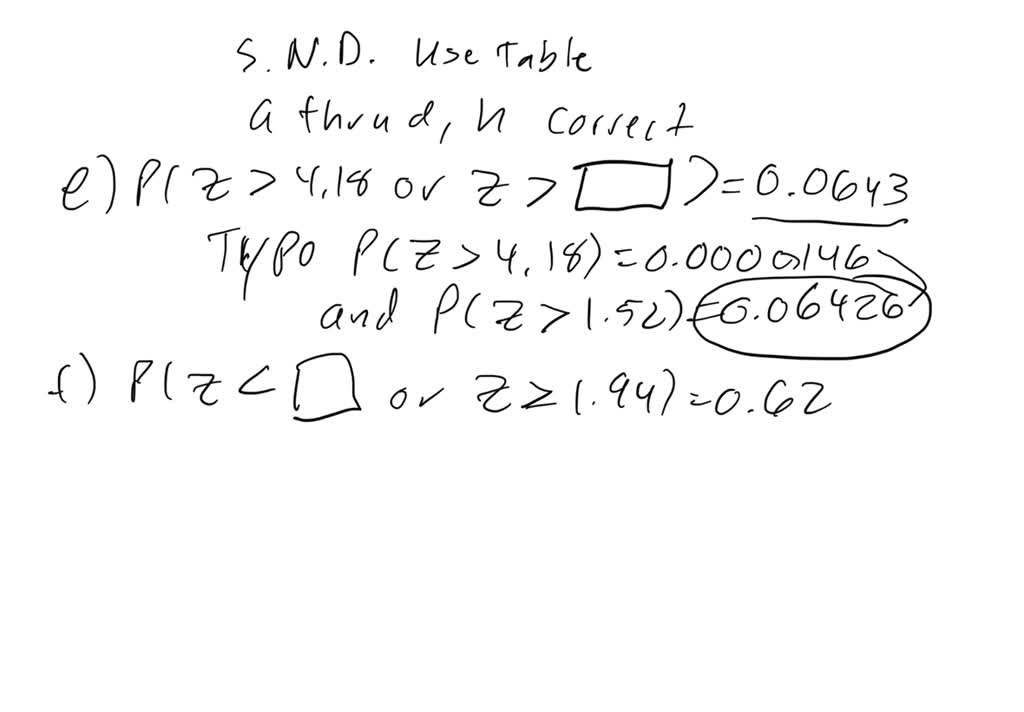 S.N.D. Use Table
a thru d, h correct
e) P(z > 4.18 or z > □) = 0.0643
Typo P(z > 4.18) = 0.0000146
and P(z > 1.52) = 0.06426
f) P(z < □ or z ≥ 1.94) = 0.62